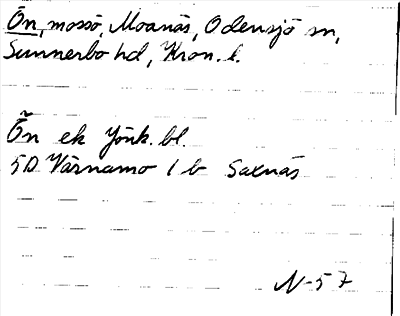 Ön, mosse, Moanäs, Odensjö sn,
Sunnerbo hd, Kron. l.
Ön ek Jönk. bl.
5D Värnamo 1 b Saxnäs
N-57